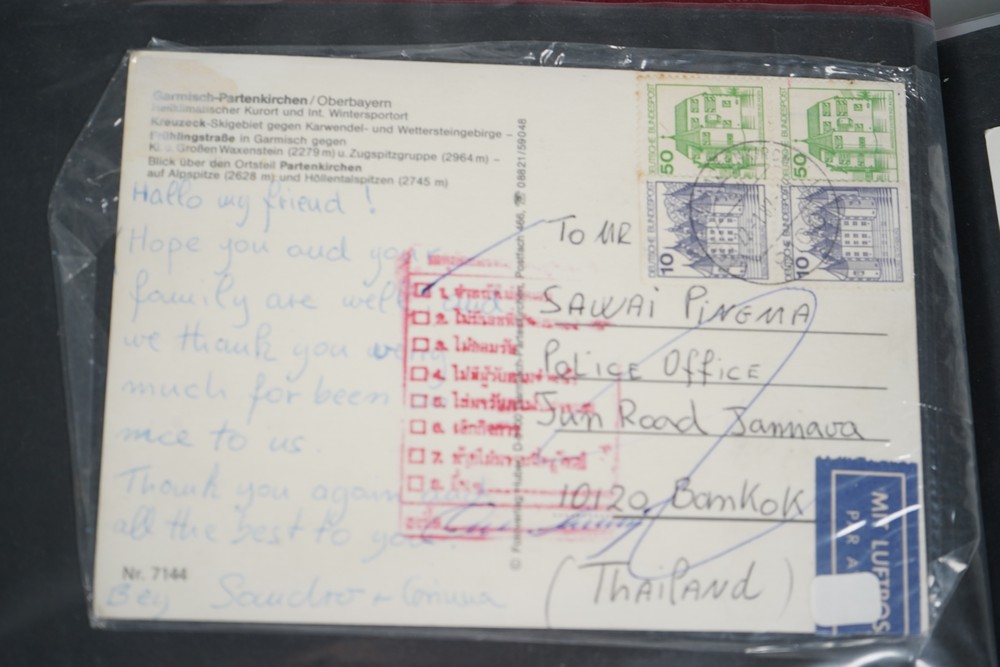 Garmisch-Partenkirchen/Oberbayern
Heilklimatischer Kurort und Int. Wintersportort
Kreuzeck-Skigebiet gegen Karwendel- und Wettersteingebirge –
Frühlingstraße in Garmisch gegen
Großen Waxenstein (2279 m) u. Zugspitzgruppe (2964 m) –
Blick über den Ortsteil Partenkirchen
auf Alpspitze (2628 m) und Höllentalspitzen (2745 m)
Hallo my friend !
Hope you and your
family are well and
we thank you very
much for been
nice to us.
Thank you again and
all the best to you.
Bey Sandro + Corinna
Nr. 7144
Postfach 466, ☎ 08821/59048
DEUTSCHE BUNDESPOST
50
DEUTSCHE BUNDESPOST
50
DEUTSCHE BUNDESPOST
10
DEUTSCHE BUNDESPOST
10
To MR
SAWAI PiNEMA
POLiCE OFFiCE
Jun Road Jannava
10120 BamKoK
(THAiLAND)
1.
2.
3.
4.
5.
6.
7.
8.
MIT LUFTPOS
PAR A